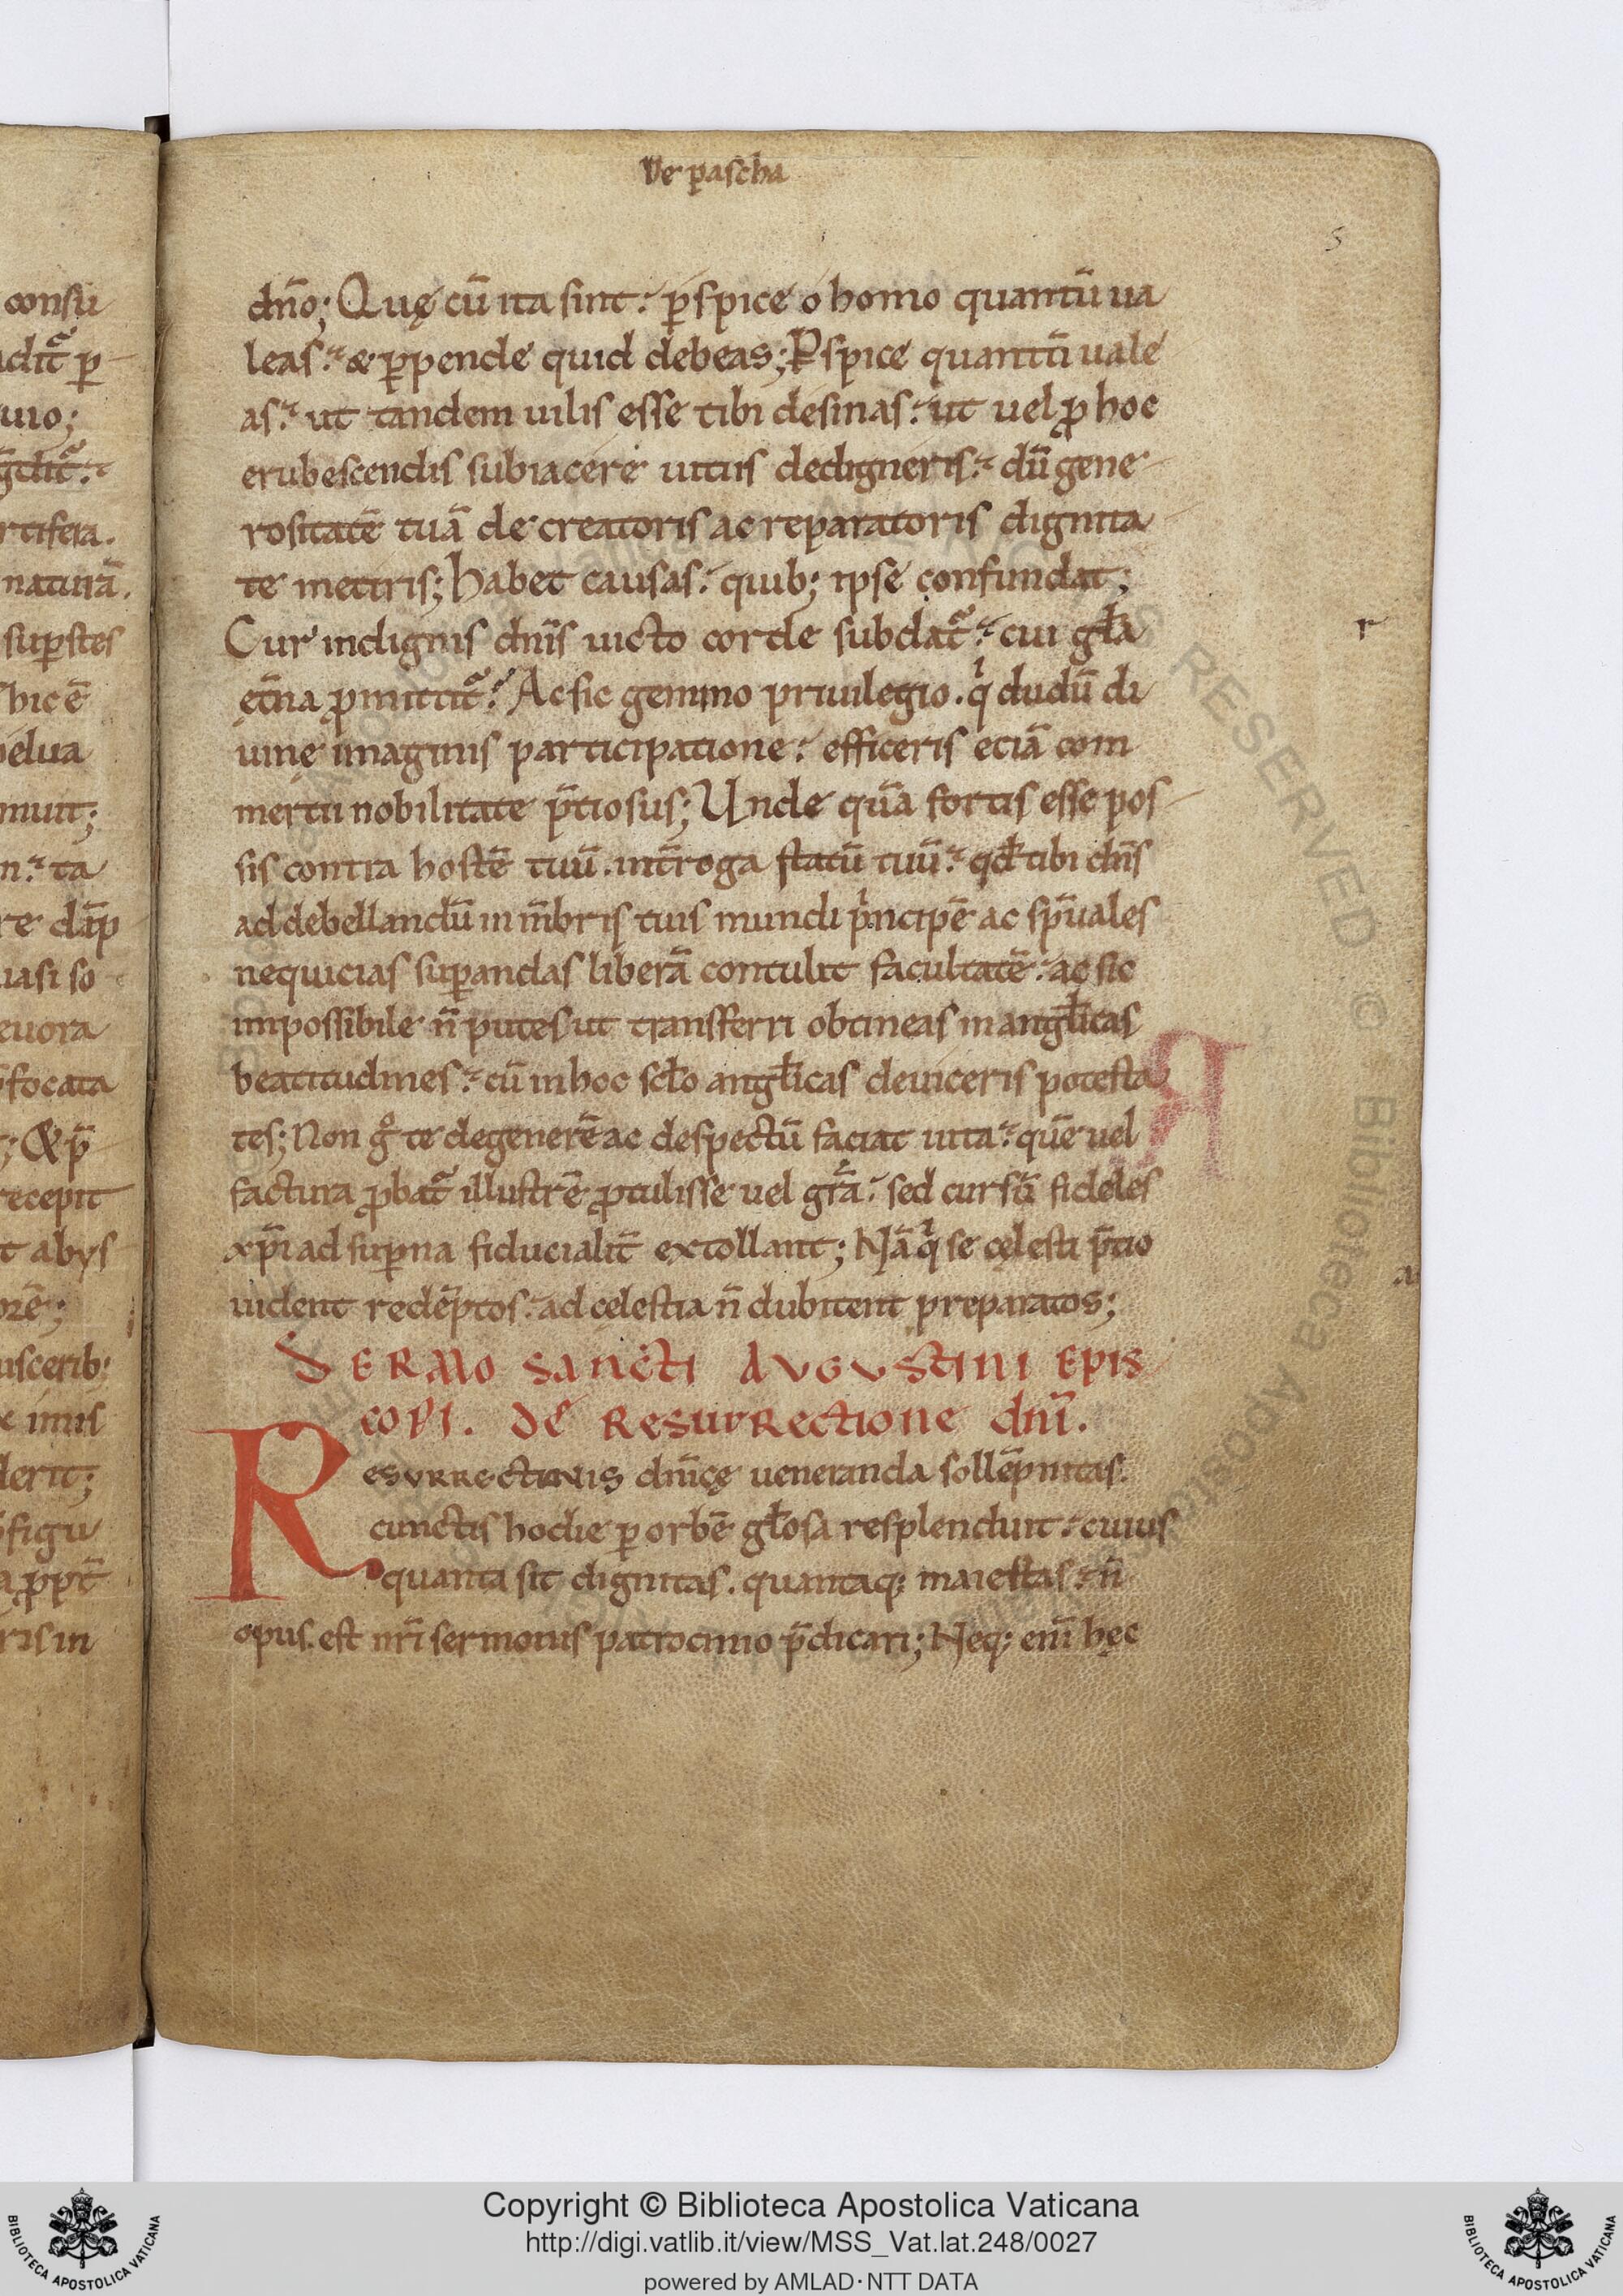 De pascha
5
dn̄o; Quę cū ita sint. ꝑspice o homo quantū ua
leas. & ꝑpende quid debeas; Ꝑspice quantū uale
as. ut tandem uilis esse tibi desinas. ut uel ꝓ hoc
erubescendis subiacere uitiis dedigneris. dū gene
rositatē tuā de creatoris ac reparatoris dignita
te metiris; Habet causas. quib; ipse confundat;
Cur indignis dn̄is uicto corde subdat᷑. cui gl̄a
ęt̄na ꝓmittit᷑. Ac sic gemino priuilegio. qͥ dudū di
uinę imaginis participatione. efficeris eciā com
mertii nobilitate p̄tiosus; Unde quā fortis esse pos
sis contra hostē tuū. int̄roga statū tuū. qđ tibi dn̄s
ad debellandū in m̄bris tuis mundi pͥncipē ac sp̄uales
nequicias suꝑandas liberā contulit facultatē. ac sic
impossibile n̄ putes ut transferri obtineas in angl̄icas
beatitudines. cū in hoc scl̄o angl̄icas deuiceris potesta
tes; Non gͦ te degenerē ac despectū faciat uita. quē uel
factura ꝓbat᷑ illustrē ꝓtulisse uel gr̄a. sed cursū fideles
xp̄i ad suꝑna fiducialit̄ extollant; Nā qͥ se cęlesti p̄tio
uident redēptos. ad cęlestia n̄ dubitent preparatos;
SERMO SANCTI AVGVSTINI EPIS
COPI. DE RESURRECTIONE dn̄i.
RESVRRECTINIS dn̄icę ueneranda sollēpnitas.
cunctis hodie ꝑ orbē gl̄osa resplenduit. cuius
quanta sit dignitas. quantaq; maiestas. n̄
opus est nr̄i sermonis patrocinio p̄dicari; Neq; eni̅ hęc
r
consu
uio;
rtifera.
naturā.
suꝑstes
hic ē
elua
muit;
n. ta
re dāp
uasi so
euora
focata
; & p̄
recepit
t abys
orē;
uscerib;
x imis
derit;
figu
ris in
Copyright © Biblioteca Apostolica Vaticana
http://digi.vatlib.it/view/MSS_Vat.lat.248/0027
powered by AMLAD·NTT DATA
BIBLIOTECA APOSTOLICA VATICANA
BIBLIOTECA APOSTOLICA VATICANA